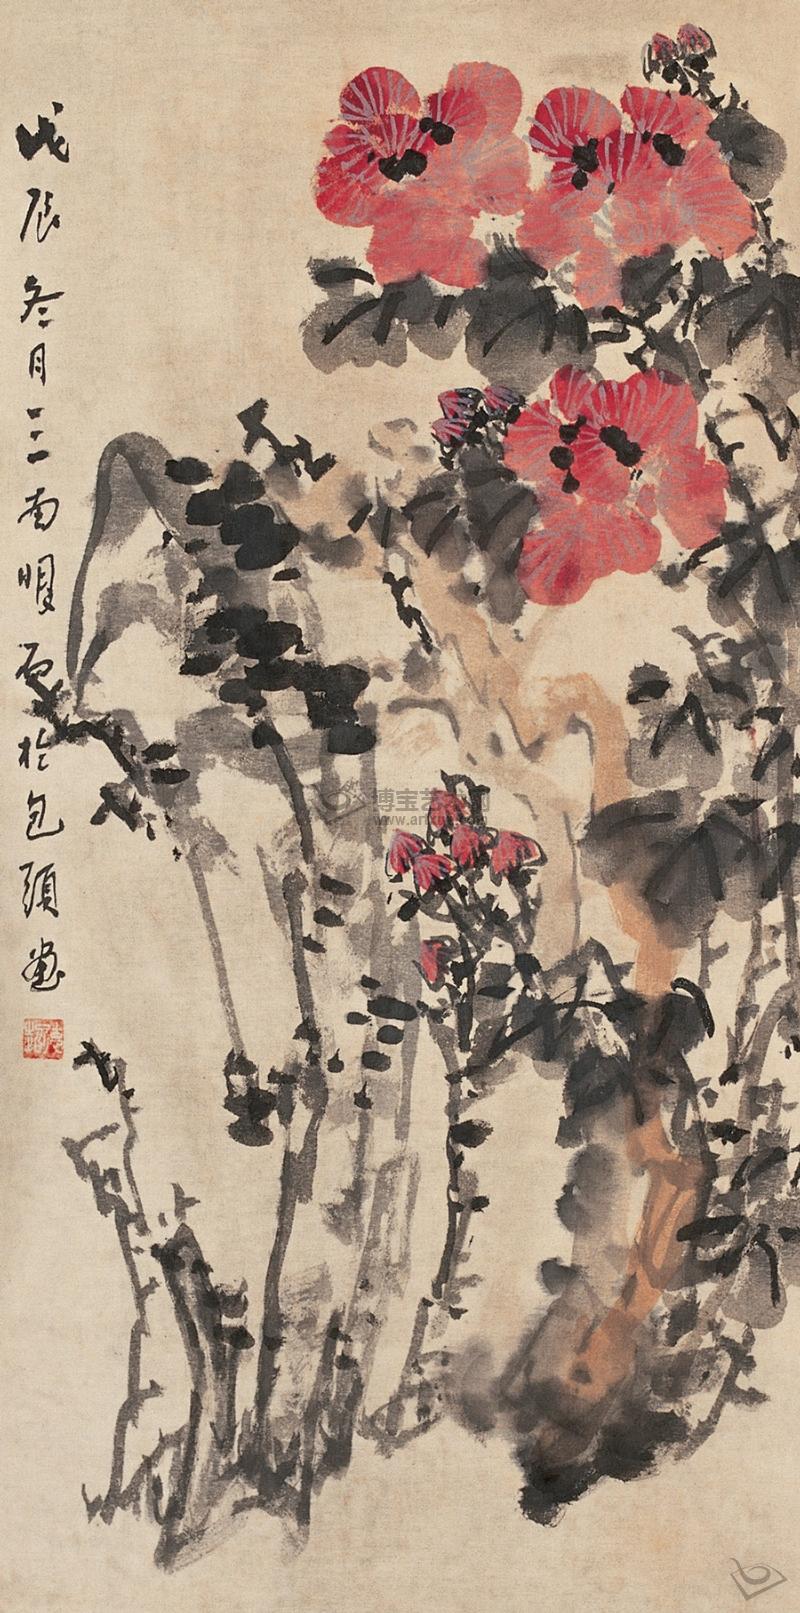 戊辰冬月三南明夏於包頭画
博宝艺术网
www.artxun.com